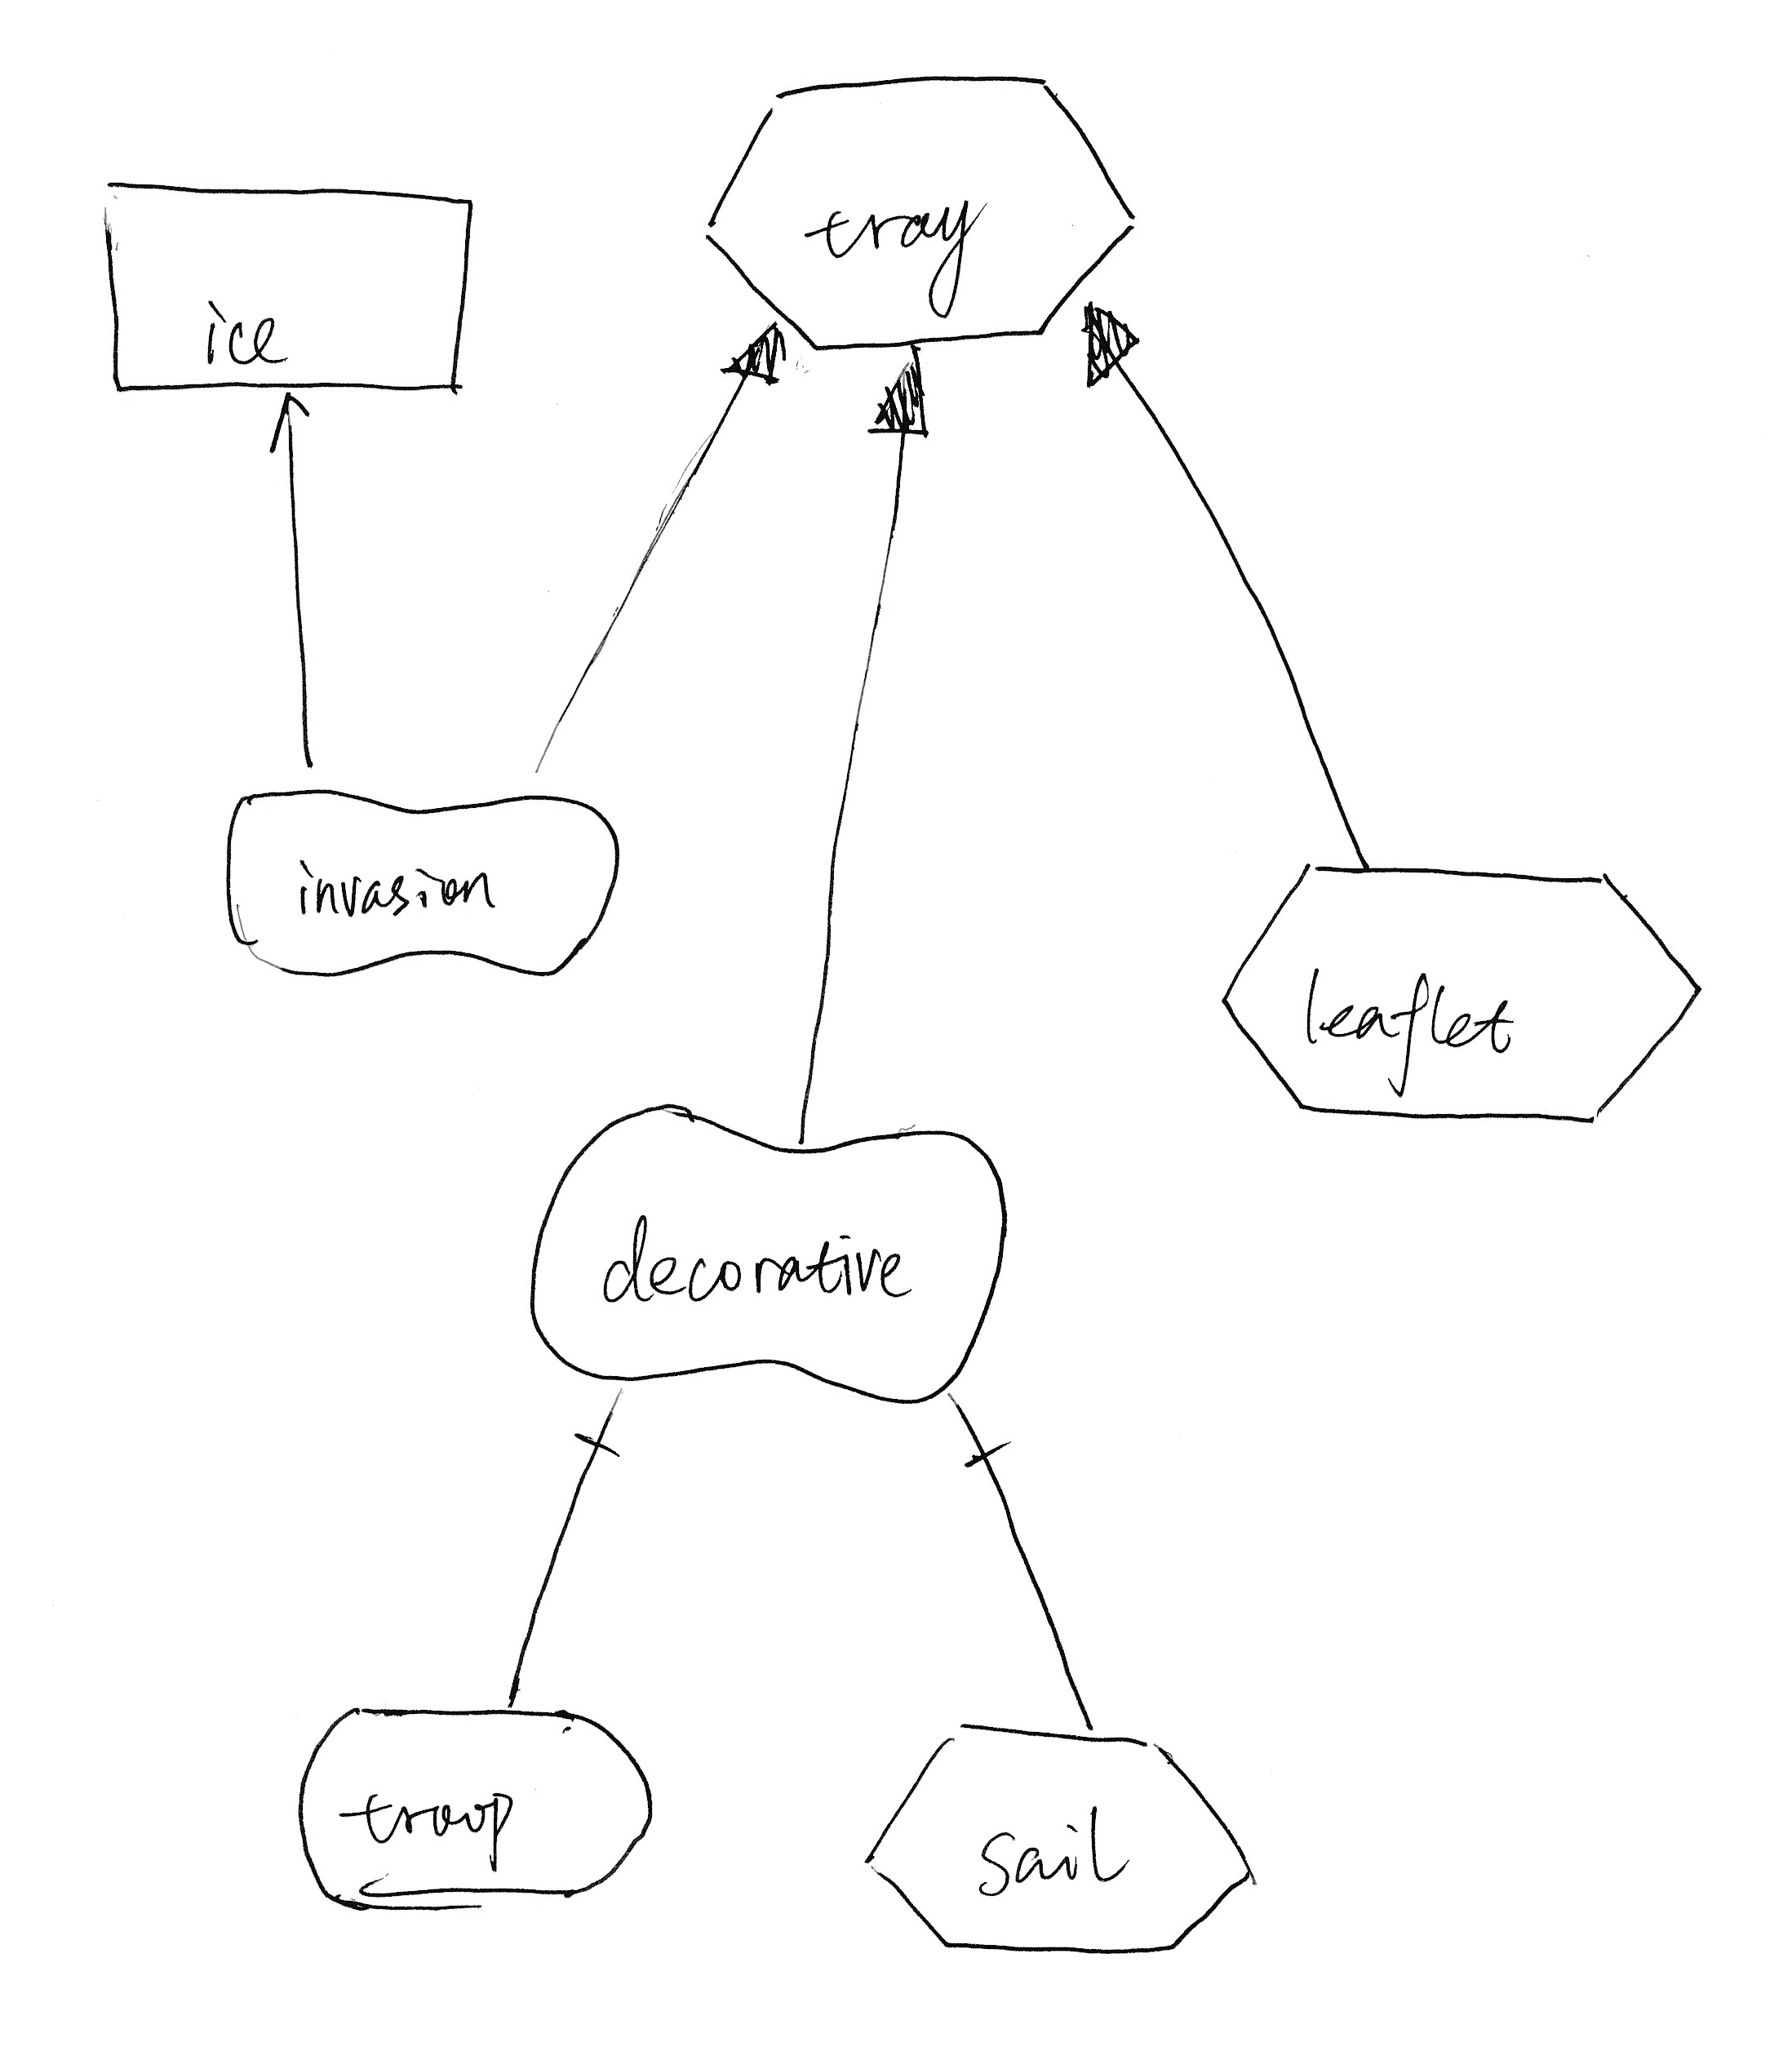 tray
ice
invasion
leaflet
decorative
troop
sail